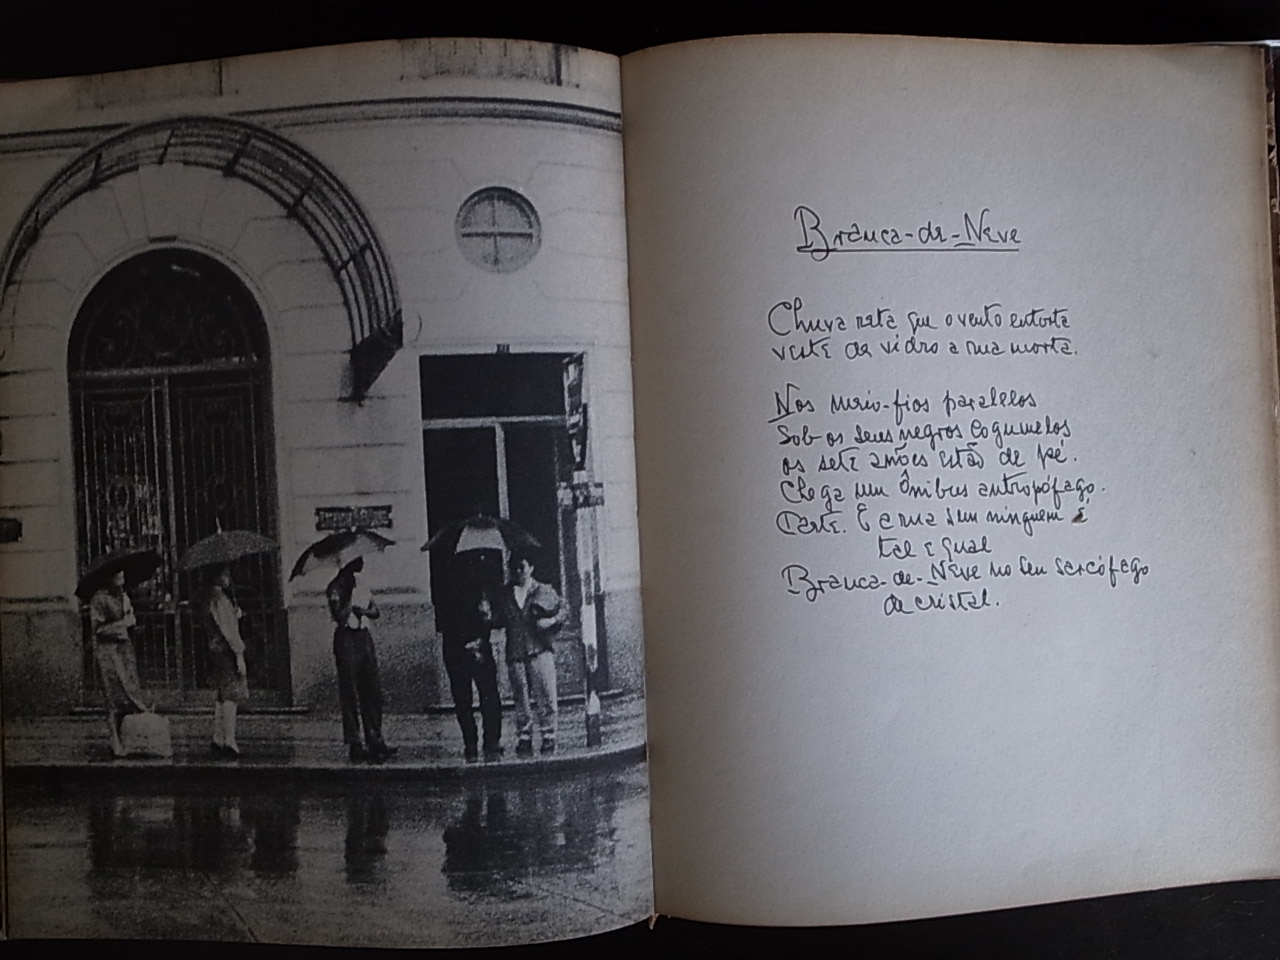 Branca-de-Neve
Chuva reta que o vento entorta
veste de vidro a rua morta.
Nos meio-fios paralelos
Sob os seus negros cogumelos
os sete anões estão de pé.
Chega um Ônibus antropófago.
Parte. E a rua sem ninguem é
tal e qual
Branca-de-Neve no seu sarcófago
de cristal.